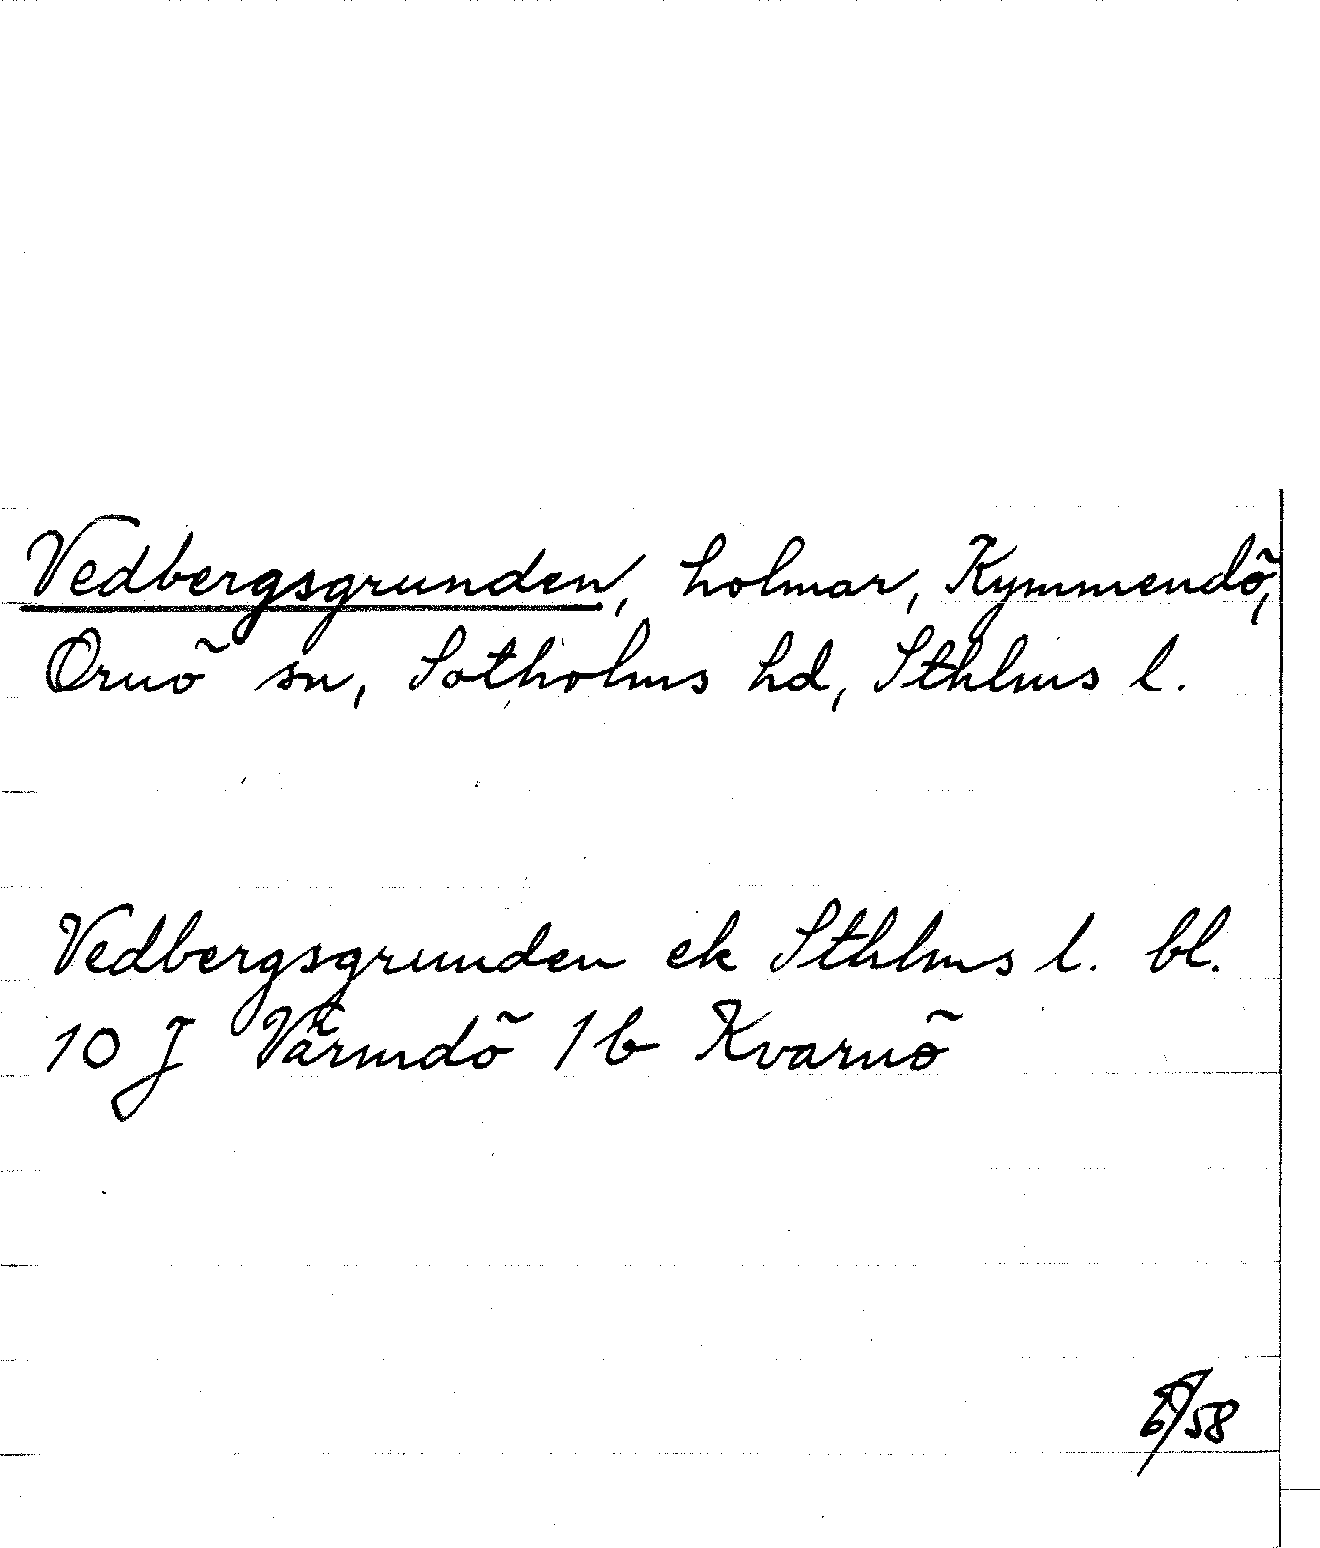 Vedbergsgrunden, holmar, Kymmendö,
Ornö sn, Sotholms hd, Sthlms l.
Vedbergsgrunden ek Sthlms l. bl.
10 J Värmdö 1 b Kvarnö
/58